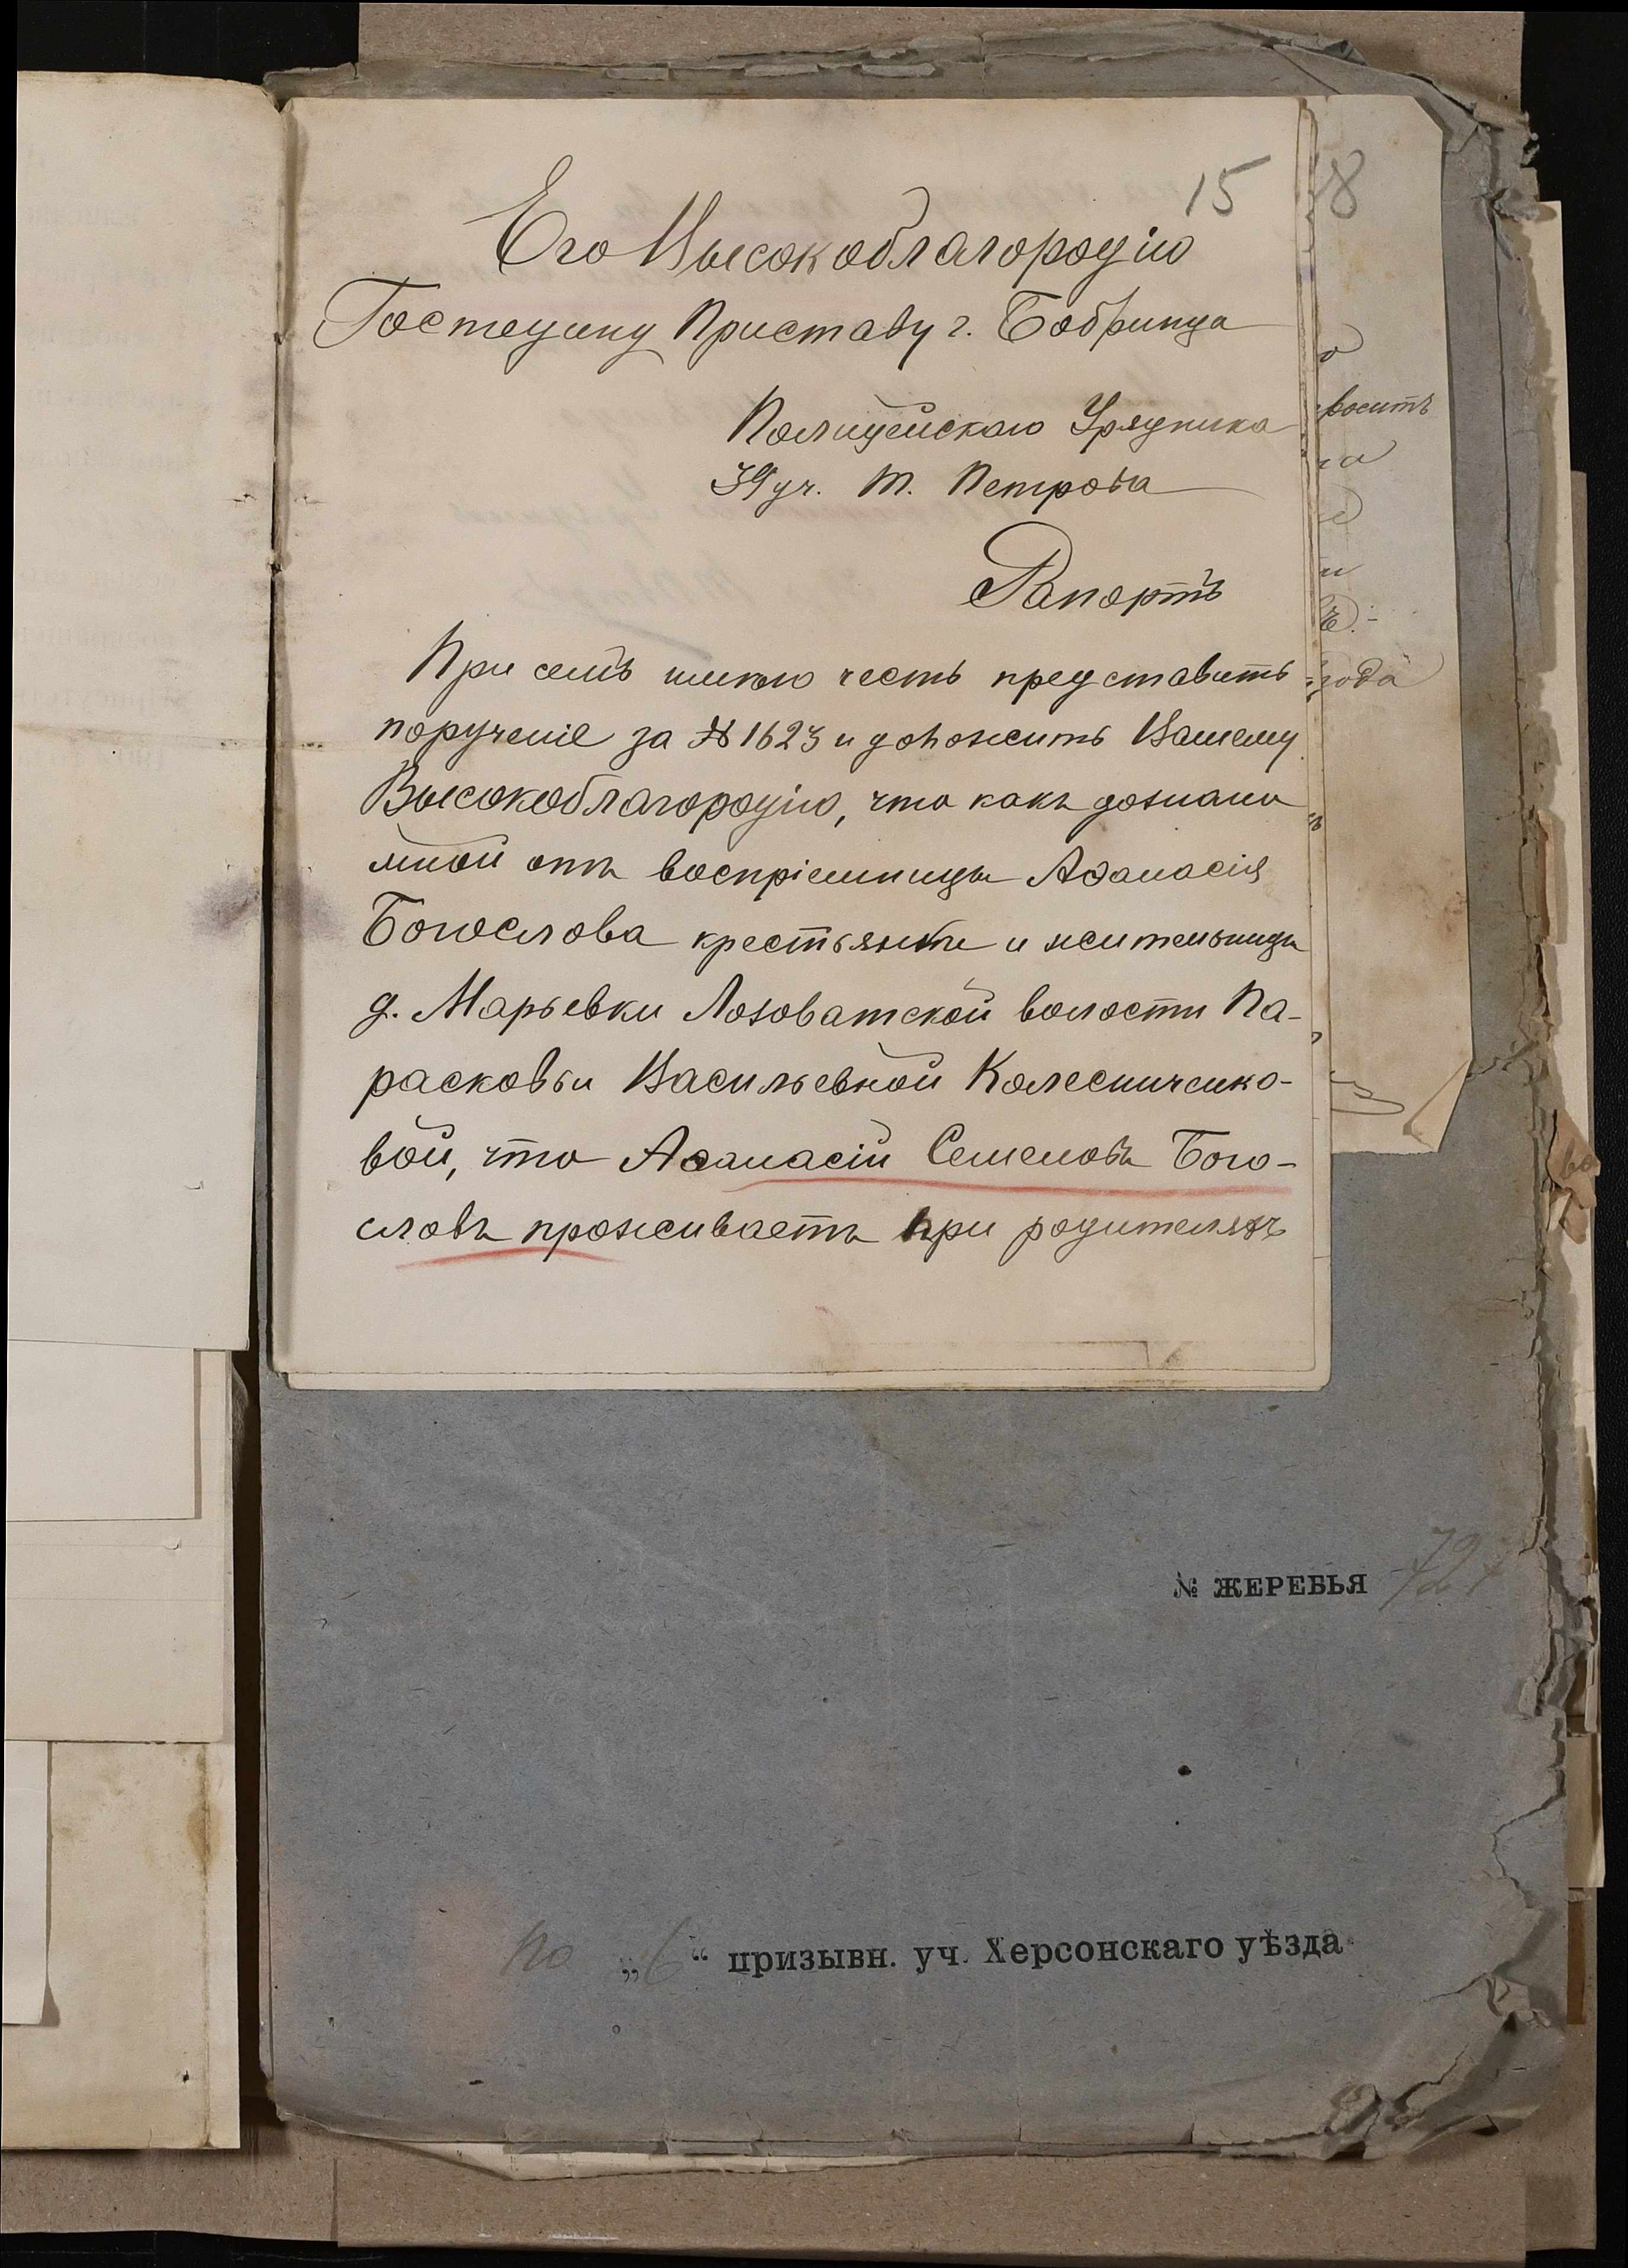 15
Его Высокоблагородію
Господину Приставу г. Бобринца
Полицейскаго Урядника
39 уч. Т. Петрова
Рапортъ
При семъ имѣю честь представить
порученіе за № 1623 и доложить Вашему
Высокоблагородію, что какъ дознано
мной отъ воспріемницы Аѳанасія
Богослова крестьянки и жительницы
д. Марьевки Лозоватской волости Па-
расковьи Васильевной Колесниченко-
вой, что Аѳанасій Семеновъ Бого-
словъ проживаетъ при родителяхъ
18
года
№ ЖЕРЕБЬЯ 721
По „6“ призывн. уч. Херсонскаго уѣзда